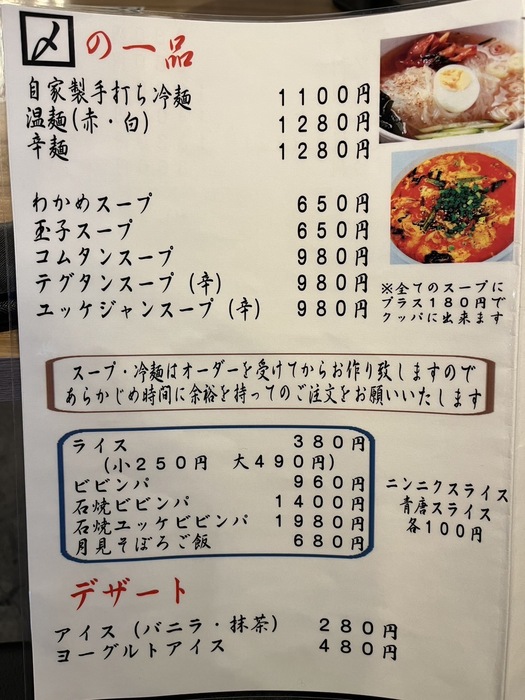 〆の一品
自家製手打ち冷麺 1100円
温麺(赤・白) 1280円
辛麺 1280円
わかめスープ 650円
玉子スープ 650円
コムタンスープ 980円
テグタンスープ(辛) 980円
ユッケジャンスープ(辛) 980円
※全てのスープに
プラス180円で
クッパに出来ます
スープ・冷麺はオーダーを受けてからお作り致しますので
あらかじめ時間に余裕を持ってのご注文をお願いいたします
ライス 380円
(小250円 大490円)
ビビンパ 960円
石焼ビビンパ 1400円
石焼ユッケビビンパ 1980円
月見そぼろご飯 680円
ニンニクスライス
青唐スライス
各100円
デザート
アイス(バニラ・抹茶) 280円
ヨーグルトアイス 480円